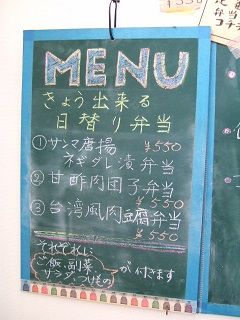 MENU
きょう出来る
日替り弁当
①サンマ唐揚
ネギダレ漬弁当
¥550
②甘酢肉団子弁当
¥550
③台湾風肉豆腐弁当
¥550
それぞれに
ご飯、副菜
サラダ、つけもの
が付きます
¥550
弁当